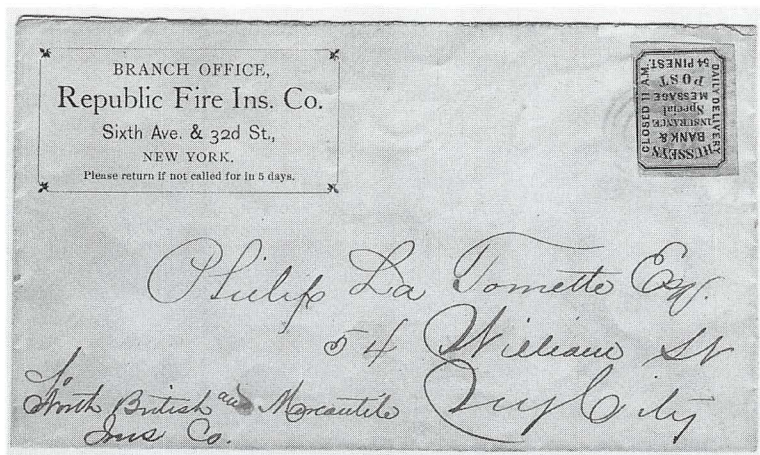 BRANCH OFFICE,
Republic Fire Ins. Co.
Sixth Ave. & 32d St.,
NEW YORK.
Please return if not called for in 5 days.
HUSSEY'S
BANK &
INSURANCE
Special
MESSAGE
POST
54 PINE ST.
CLOSED 11 A.M.
DAILY DELIVERY
Philip La Tomette Esqr.
54 William St
NY City
To
North British and Mercantile
Ins Co.